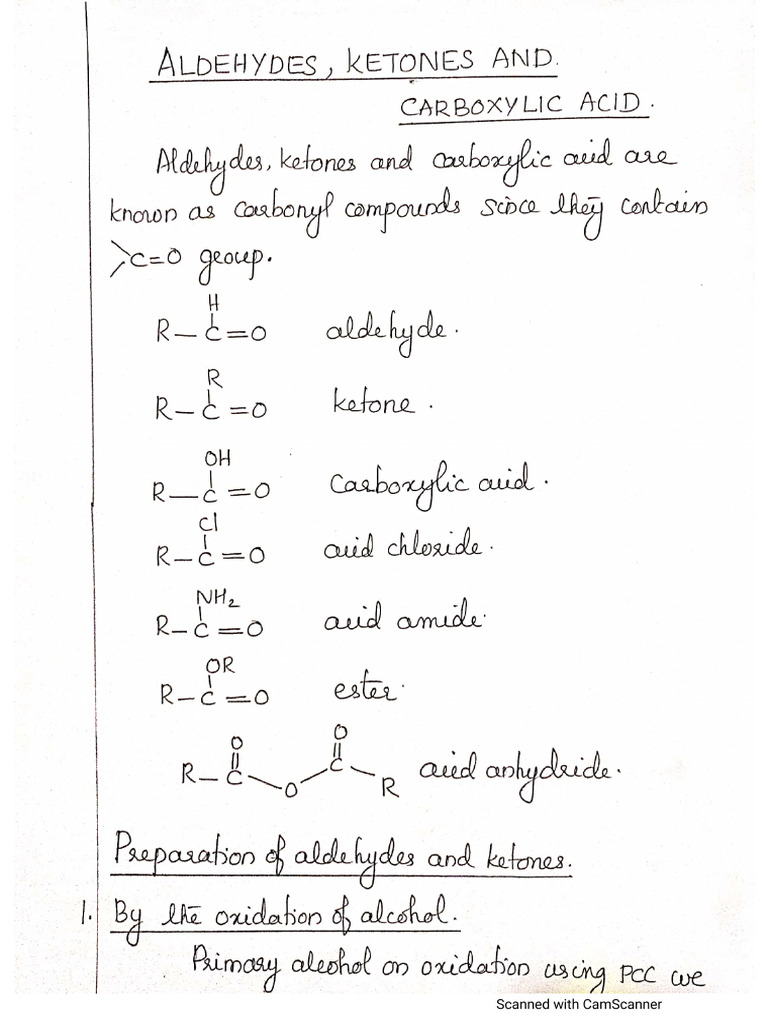 ALDEHYDES, KETONES AND.
CARBOXYLIC ACID.
Aldehydes, ketones and carboxylic acid are
known as carbonyl compounds since they contain
>C=O group.
H
R–C=O aldehyde.
R
R–C=O ketone.
OH
R–C=O Carboxylic acid.
Cl
R–C=O acid chloride.
NH₂
R–C=O acid amide.
OR
R–C=O ester.
O O
R–C C acid anhydride.
O R
Preparation of aldehydes and ketones.
1. By the oxidation of alcohol.
Primary alcohol on oxidation using PCC we
Scanned with CamScanner